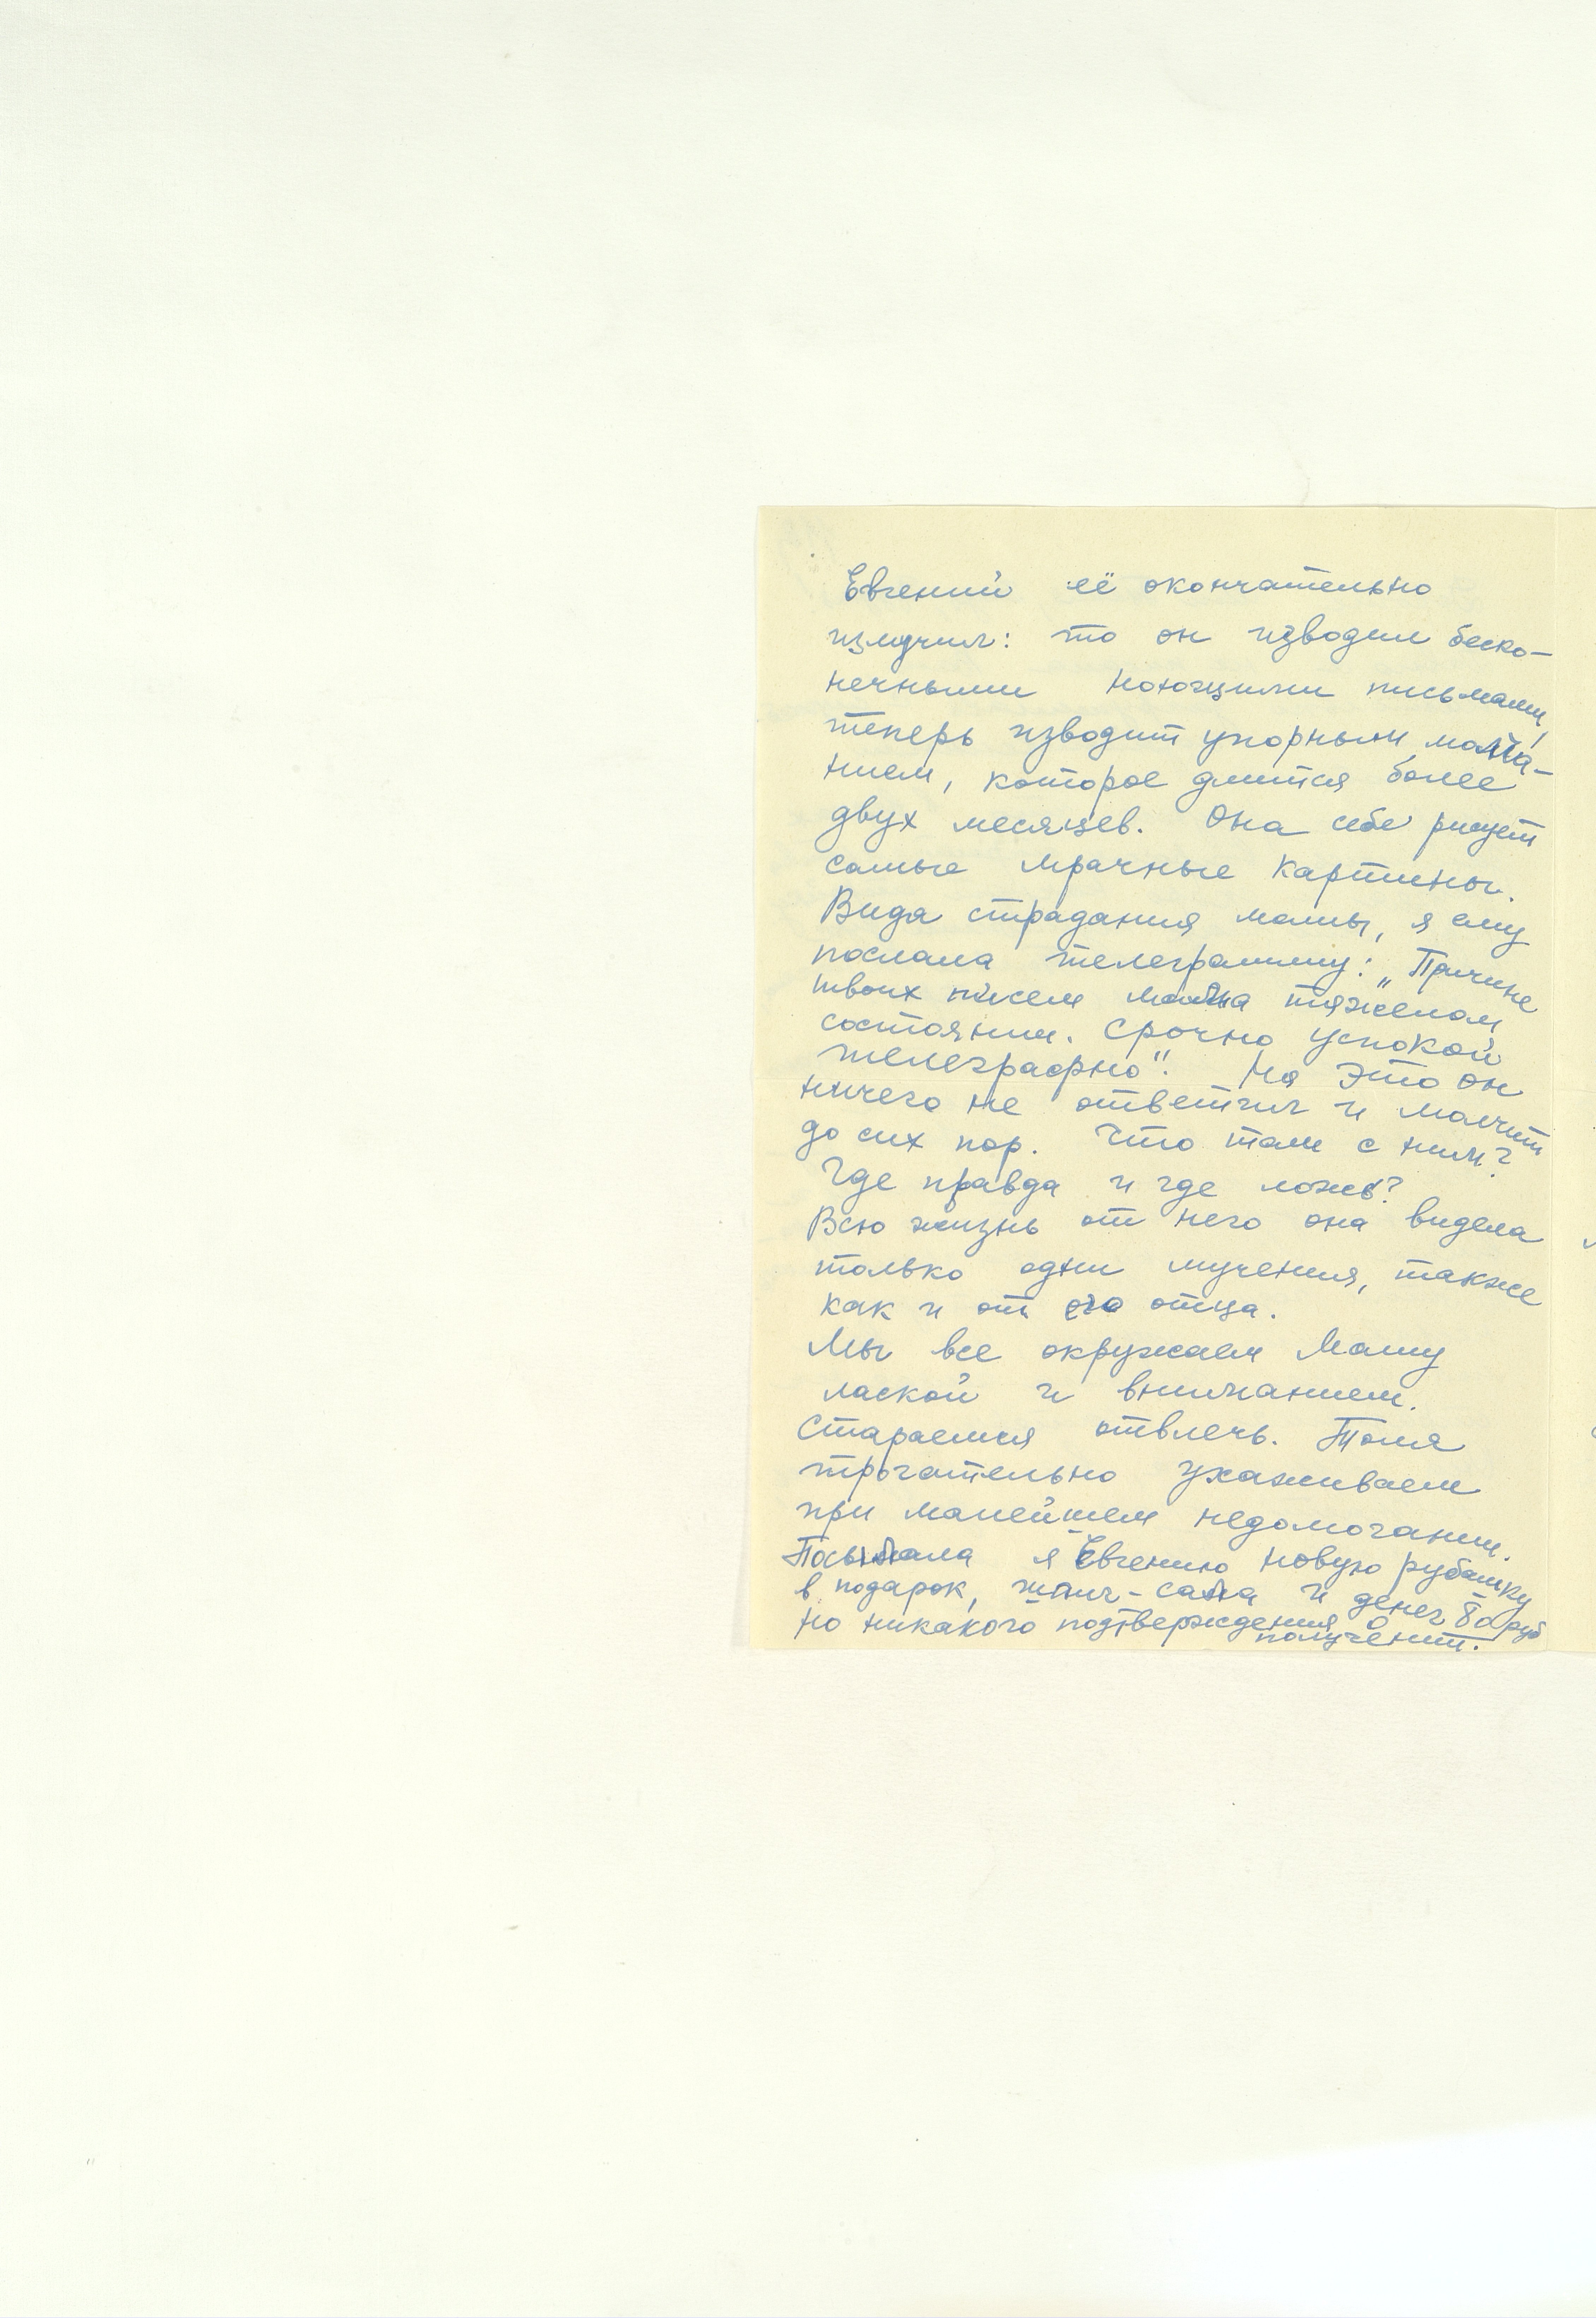 Евгений её окончательно
измучил: то он изводил беско-
нечными ноющими письмами,
теперь изводит упорным молча-
нием, которое длится более
двух месяцев. Она себе рисует
самые мрачные картины.
Видя страдания мамы, я ему
послала телеграмму: „Причине
твоих писем мама тяжелом
состоянии. Срочно успокой
телеграфно". На это он
ничего не ответил и молчит
до сих пор. Что там с ним?
Где правда и где ложь?
Всю жизнь от него она видела
только одни мучения, также
как и от его отца.
Мы все окружаем Маму
лаской и вниманием.
Стараемся отвлечь. Толя
трогательно ухаживает
при малейшем недомогании.
Посылала я Евгению новую рубашку
в подарок, шпиг-сала и денег руб
но никакого подтверждения о
получении.